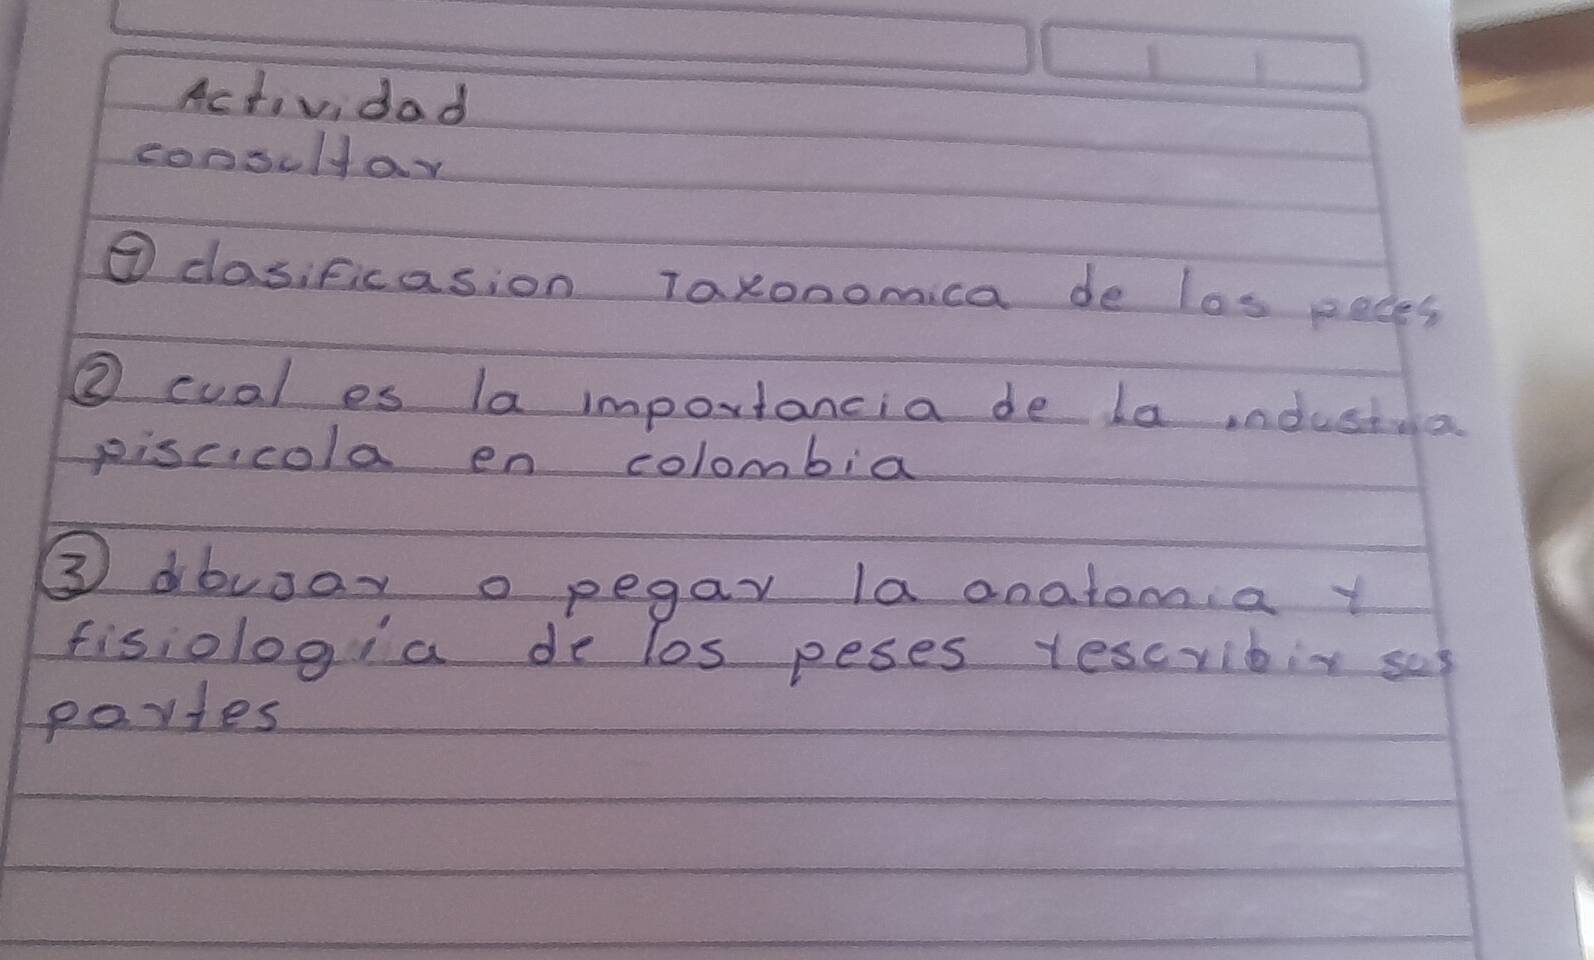 Actividad
consultar
① clasificasion Taxonomica de los peces
② cual es la importancia de La industria
piscicola en colombia
③ dibujar o pegar la anatomia y
fisiología de los peses yescribir sus
partes